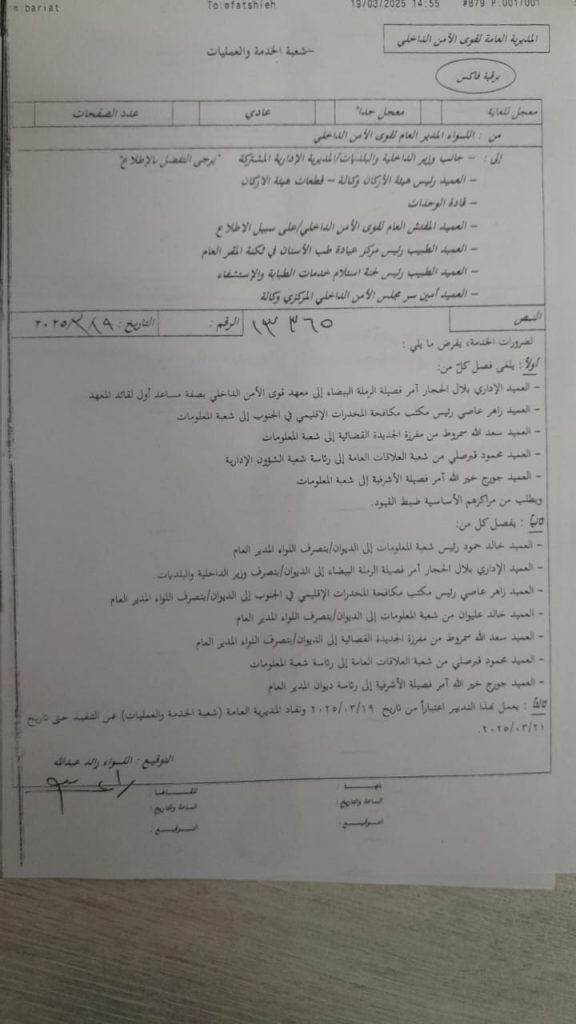 bariat To:mfatshieh 19/03/2025 14:55 #879 P.001/001
المديرية العامة لقوى الأمن الداخلي
-شعبة الخدمة والعمليات
برقية فاكس
معجل للغاية معجل جداً عادي عدد الصفحات
من : اللواء المدير العام لقوى الأمن الداخلي
إلى : - جانب وزير الداخلية والبلديات/المديرية الإدارية المشتركة "يرجى التفضل بالإطلاع"
- العميد رئيس هيئة الأركان وكالة - قطعات هيئة الأركان
- قادة الوحدات
- العميد المفتش العام لقوى الأمن الداخلي/على سبيل الاطلاع
- العميد الطبيب رئيس مركز عيادة طب الأسنان في ثكنة المقر العام
- العميد الطبيب رئيس لجنة استلام خدمات الطبابة والإستشفاء
- العميد أمين سر مجلس الأمن الداخلي المركزي وكالة
النص الرقم : ١٣٣٦٥ التاريخ : ٢٠٢٥/٣/١٩
لضرورات الخدمة، يفرض ما يلي :
أولاً : يلغى فصل كلّ من:
- العميد الإداري بلال الحجار آمر فصيلة الرملة البيضاء إلى معهد قوى الأمن الداخلي بصفة مساعد أول لقائد المعهد
- العميد زاهر عاصي رئيس مكتب مكافحة المخدرات الإقليمي في الجنوب إلى شعبة المعلومات
- العميد سعد الله سمروط من مفرزة الجديدة القضائية إلى شعبة المعلومات
- العميد محمود قبرصلي من شعبة العلاقات العامة إلى رئاسة شعبة الشؤون الإدارية
- العميد جورج خير الله آمر فصيلة الأشرفية إلى شعبة المعلومات
ويطلب من مراكزهم الأساسية ضبط القيود.
ثانياً : يفصل كل من:
- العميد خالد حمود رئيس شعبة المعلومات إلى الديوان/بتصرف اللواء المدير العام
- العميد الإداري بلال الحجار آمر فصيلة الرملة البيضاء إلى الديوان/بتصرف وزير الداخلية والبلديات
- العميد زاهر عاصي رئيس مكتب مكافحة المخدرات الإقليمي في الجنوب إلى الديوان/بتصرف اللواء المدير العام
- العميد خالد عليوان من شعبة المعلومات إلى الديوان/بتصرف اللواء المدير العام
- العميد سعد الله سمروط من مفرزة الجديدة القضائية إلى الديوان/بتصرف اللواء المدير العام
- العميد محمود قبرصلي من شعبة العلاقات العامة إلى رئاسة شعبة المعلومات
- العميد جورج خير الله آمر فصيلة الأشرفية إلى رئاسة ديوان المدير العام
ثالثاً : يعمل بهذا التدبير اعتباراً من تاريخ ٢٠٢٥/٠٣/١٩ وتفاد المديرية العامة (شعبة الخدمة والعمليات) عن التنفيذ حتى تاريخ
٢٠٢٥/٠٣/٢١.
التوقيع : اللواء رائد عبدالله
بثها : تلقاها :
الساعة والتاريخ : الساعة والتاريخ :
التوقيع : التوقيع :